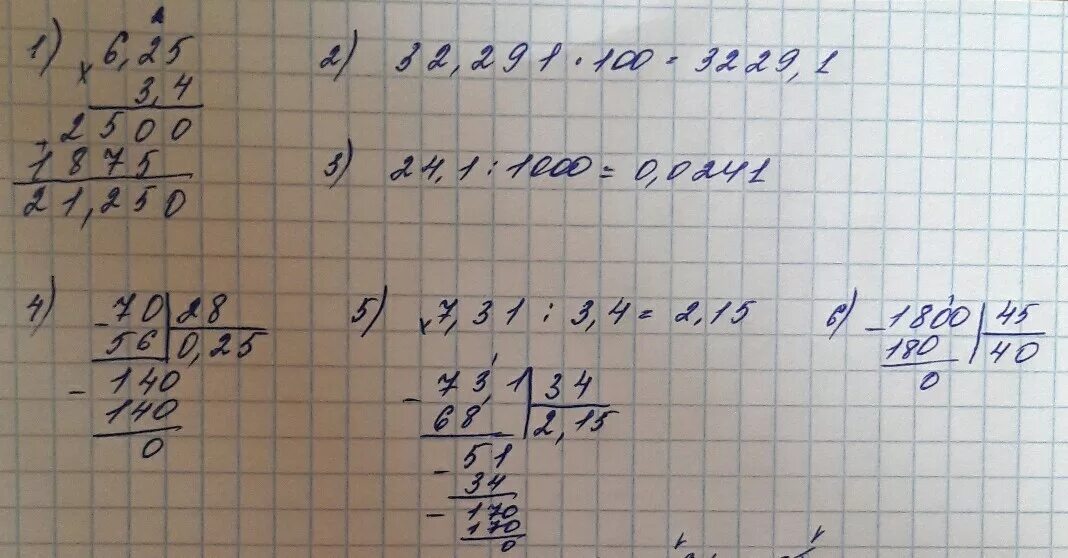 1) 2
6,25
x 3,4
2500
1875
21,250
2) 32,291 · 100 = 3229,1
3) 24,1 : 1000 = 0,0241
4) - 70 | 28
56 | 0,25
- 140
140
0
5) 7,31 : 3,4 = 2,15
- 73,1 | 34
68 | 2,15
- 51
34
- 170
170
0
6) - 1800 | 45
180 | 40
0